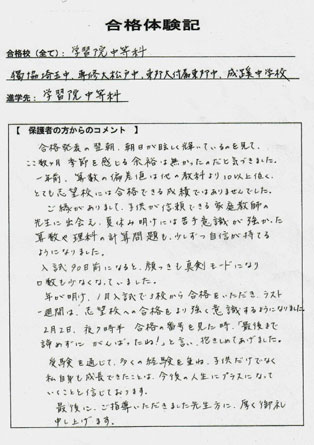 合格体験記
合格校(全て): 学習院中等科
獨協埼玉中、専修大松戸中、東邦大付属東邦中、成蹊中学校
進学先: 学習院中等科
【 保護者の方からのコメント 】
合格発表の翌朝、朝日が眩しく輝いているのを見て、
ここ数ヶ月 季節を感じる余裕は無かったのだと気づきました。
一年前、算数の偏差値は他の教科より10以上低く、
とても志望校には合格できる成績ではありませんでした。
ご縁がありまして、子供が信頼できる家庭教師の
先生に出会え、夏休み明けには苦手意識が強かった
算数や理科の計算問題も、少しずつ自信が持てる
ようになりました。
入試90日前になると、顔つきも真剣モードになり
口数も少なくなっていました。
年が明け、1月入試で3校から合格をいただき、ラスト
一週間は、志望校への合格をより強く意識するようになりました。
2月2日、夜7時半 合格の番号を見た時、「最後まで
諦めずに がんばったね!」と言い、抱きしめてあげました。
受験を通じて、多くの経験を重ね、子供だけでなく
私自身も成長できたことは、今後の人生にプラスになって
いくことと信じております。
最後に、ご指導いただきました先生方に、厚く御礼
申し上げます。